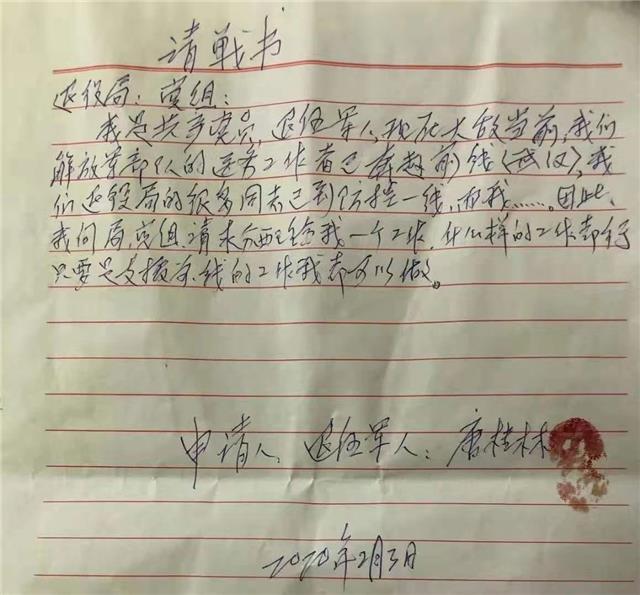 请战书
退役局:党组:
我是共产党员,退伍军人,现在大敌当前,我们
解放军部队的医务工作者已奔赴前线(武汉),我
们退役局的很多同志已到防控一线,而我……。因此,
我向局,党组请求分配给我一个工作,什么样的工作都行
只要是支援前线的工作我都可以做。
申请人,退伍军人:唐桂林
2020年2月3日